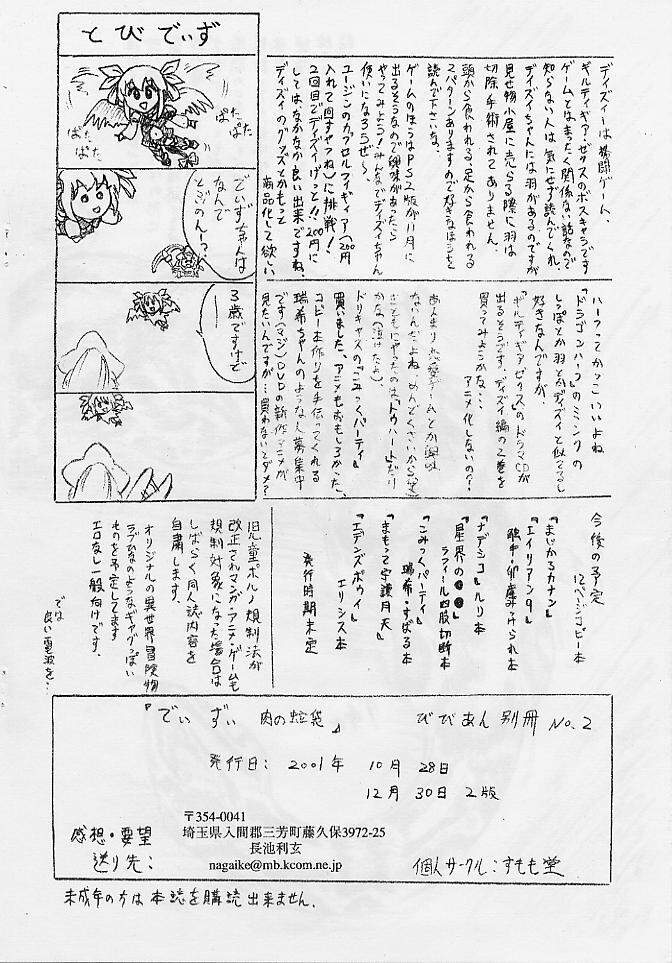 とびでぃず
ぱた
ぱた
ぱた
ぱた
でぃずちゃんは
なんで
とぶのんー?
3歳ですけど
ー
ディズィーは格闘ゲーム、
ギルティギア・ゼクスのボスキャラです
ゲームとはまったく関係ない話なので
知らない人は気にせず読んでくれ
ディズィちゃんには羽があるのですが
見せ物小屋に売らる際に羽は
切除手術されてありません。
頭から食われる、足から食われる
2パターンありますので好きなほうを
読んで下さいな。
ゲームのほうはPS2版が11月に
出るそうなので興味があったら
やってみよう!みんなでディズィちゃん
使いになろうぜ〜
ユージンのカプセルフィギュア(200円
入れて回すやつね)に挑戦!
2回目でディズィげっと!!200円に
してはなかなか良い出来ですね。
ディズィのグッズとかもっと
商品化して欲しい。
ハーフってかっこいいよね
『ドラゴンハーフ』のミンクの
しっぽとか羽とかディズィと似てるし
好きなんですが、
『ギルティギアゼクス』のドラマCDが
出るそうです。ディズィ編の2巻を
買ってみようかな・・・
アニメ化しないの?
あんまり恋愛ゲームとか興味
ないんだよね、めんどくさいから(笑)
まともにやったのはトゥハートだけ
かな(泣けたよ)
ドリキャスの『こみっくパーティ』
買いました、アニメもおもしろかった、
コピー本作りを手伝ってくれる
瑞希ちゃんのような人募集中
です(マジ)DVDの新作アニメが
見たいんですが…買わないとダメ?
今後の予定
12ページコピー本
『まじかるカナン』
『エイリアン9』
触手・卵産みつけられ本
『ナデシコ』ルリ本
『星界の●●』
ラフィール四股切断本
『こみっくパーティ』
瑞希・すばる本
『まもって守護月天』本
『エデンズボウイ』
エリシス本
発行時期未定
児童ポルノ規制法が
改正されマンガ・アニメ・ゲームも
規制対象になった場合は
しばらく同人誌内容を
自粛します。
オリジナルの異世界冒険物
ラブひなのようなギャグっぽい
ものを予定してます
エロなし一般向けです。
では
良い電波を…
『でぃずぃ 肉の蛭袋』 びびあん 別冊 No.2
発行日: 2001年 10月 28日
12月 30日 2版
感想・要望
送り先:
〒354-0041
埼玉県入間郡三芳町藤久保3972-25
長池利玄
nagaike@mb.kcom.ne.jp
個人サークル:すもも堂
未成年の方は本誌を購読出来ません.